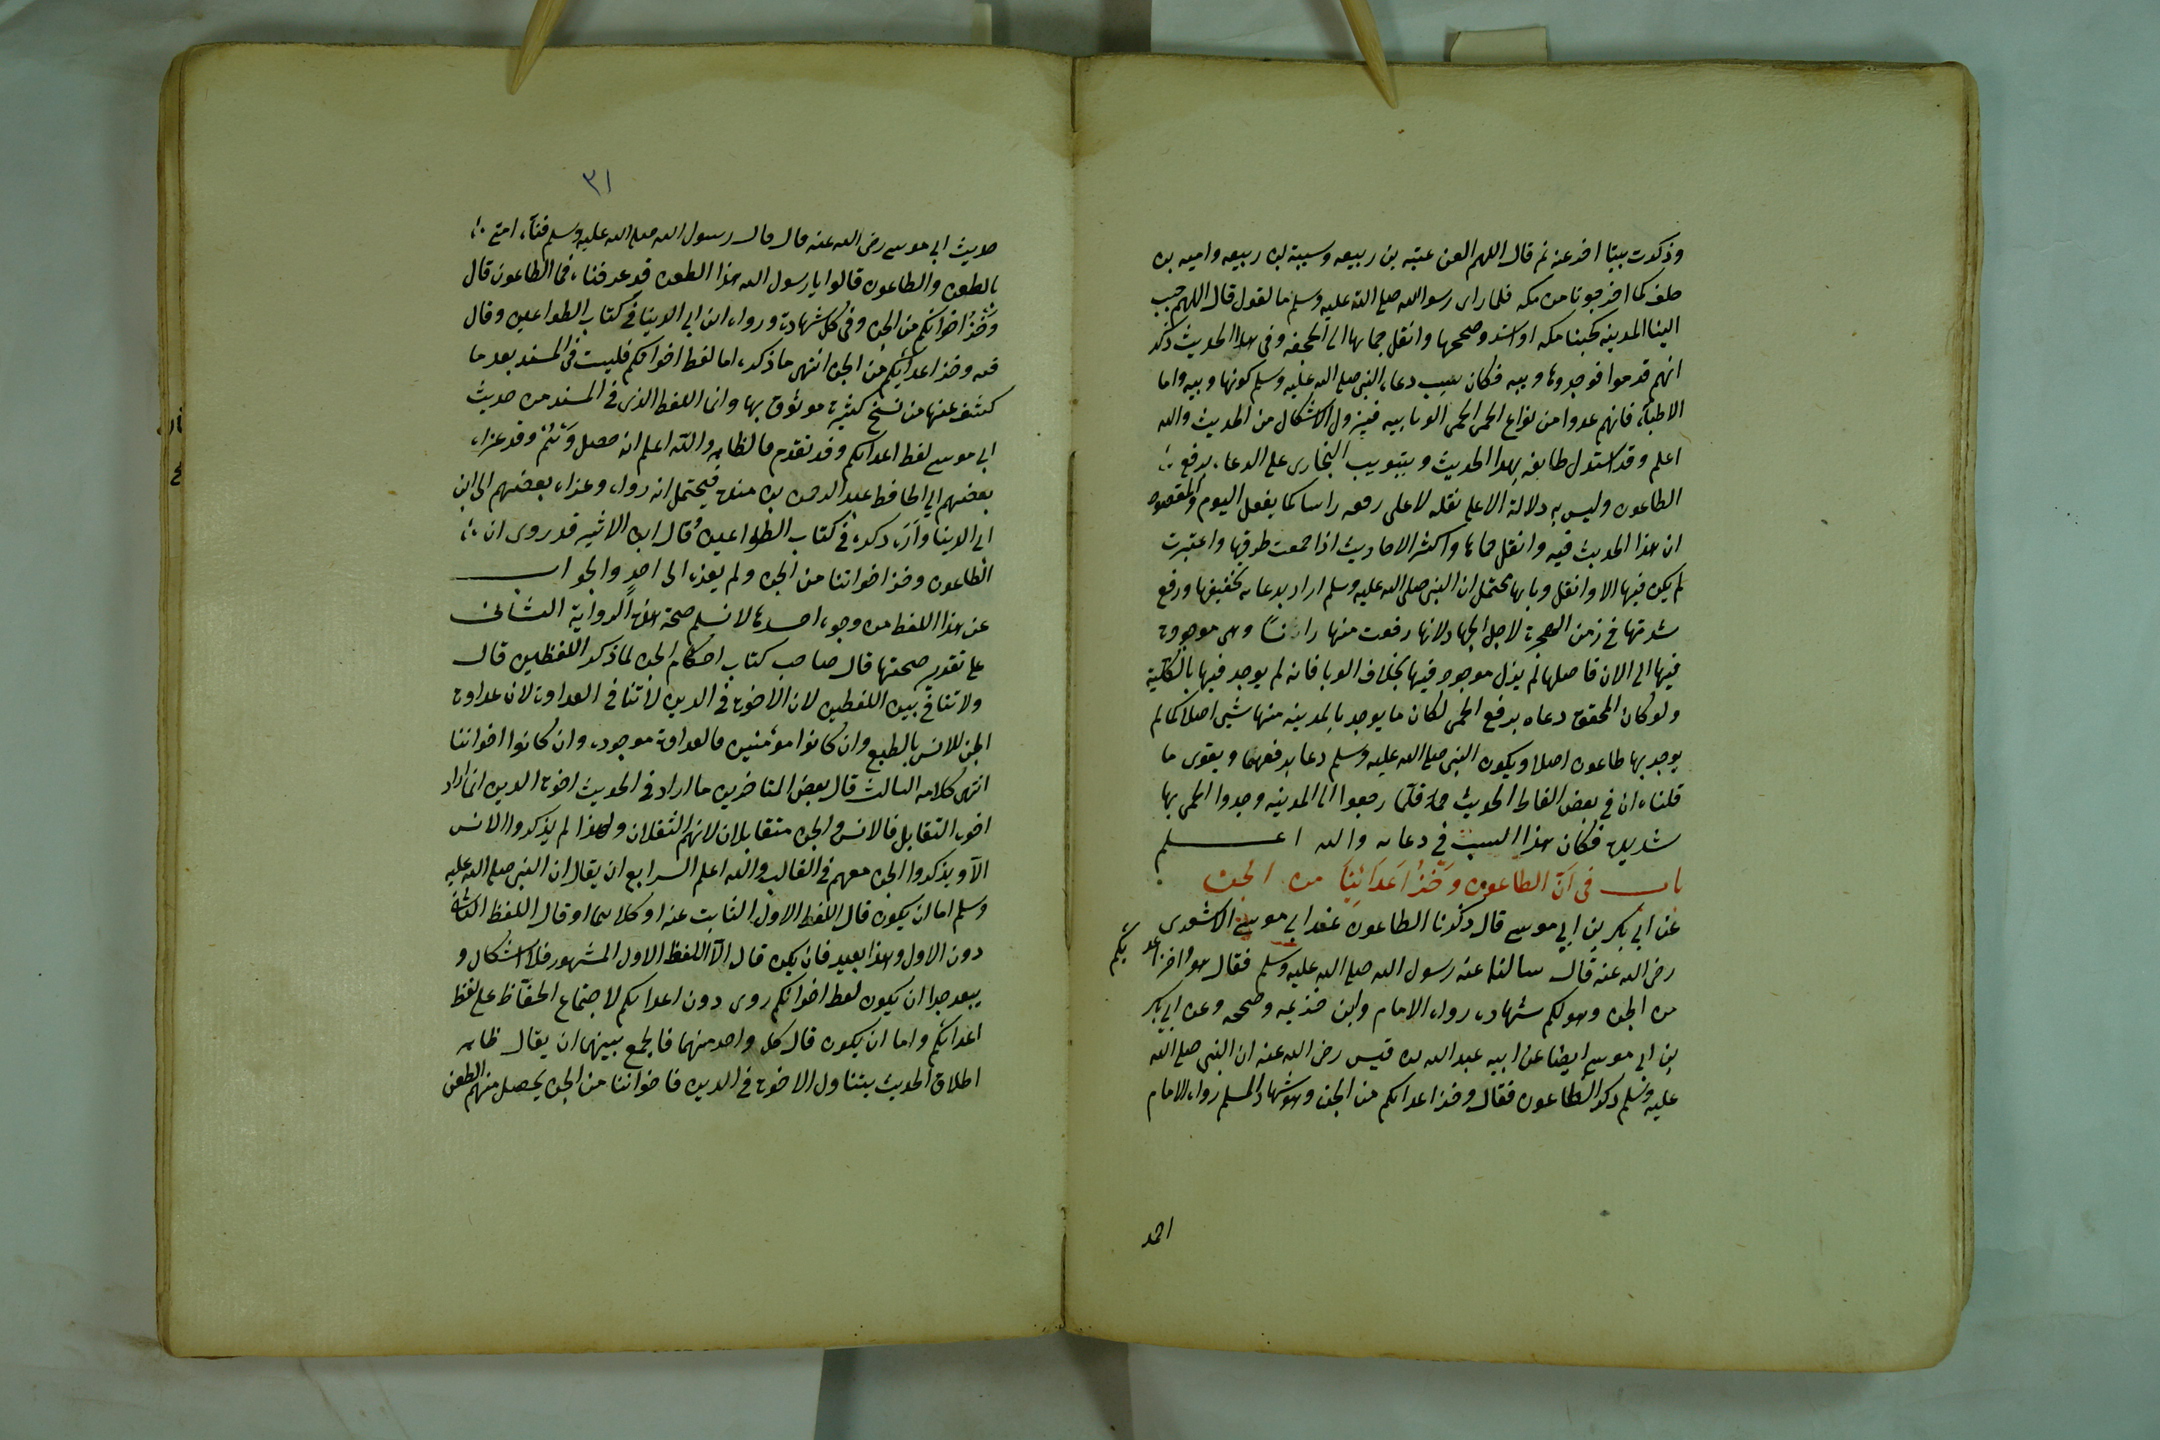 وذكرت بيتا اخر عنه ثم قال اللهم العن عتبه بن ربيعه وشيبة بن ربيعه واميه بن
خلف كما اخرجونا من مكه فلما راى رسول الله صلى الله عليه وسلم ما نقول قال اللهم حبب
الينا المدينه كحبنا مكه او اشد وصححها وانقل حماها الى الجحفه وفى هذا الحديث ذكر
انهم قدموا فوجدوها وبيه فكان سبب دعاء النبي صلى الله عليه وسلم كونها وبيه واما
الاطباء فانهم عدوا من انواع الحمى الحمى الوبابيه فيزول الاشكال من الحديث والله
اعلم وقد استدل طايفه بهذا الحديث وبتبويب البخارى على الدعاء برفع
الطاعون وليس به دلالة الا على نقله لا على رفعه راسا كما يفعل اليوم والمقصود
ان هذا الحديث فيه وانقل حماها واكثر الاحاديث اذا جمعت طرقها واعتبرت
لم يكن فيها الا وانقل وباها يحتمل ان النبي صلى الله عليه وسلم اراد بدعايه تخفيفها ورفع
شدتها فى زمن الهجرة لاجل الجهاد لا انها رفعت منها راسا وهى موجودة
فيها الى الان فاصلها لم يزل موجود فيها بخلاف الوبا فانه لم يوجد فيها بالكلية
ولو كان المحقق دعاه برفع الحمى لكان ما يوجد بالمدينه منها شيى اصلا كما لم
يوجد بها طاعون اصلا ويكون النبي صلى الله عليه وسلم دعا برفعهما ويقوى ما
قلناه ان فى بعض الفاظ الحديث فلما رجعوا الى المدينه وجدوا الحمى بها
شديدة فكان هذا السبب فى دعايه والله اعلم
باب فى ان الطاعون وخز اعدائنا من الجن
عن ابي بكر بن ابي موسى قال ذكرنا الطاعون عند ابي موسى الاشعرى
رضى الله عنه قال سالنا عنه رسول الله صلى الله عليه وسلم فقال هو وخز اعدايكم
من الجن وهو لكم شهادة رواه الامام وابن خزيمه وصححه وعن ابي بكر
بن ابى موسى ايضا عن ابيه عبد الله بن قيس رضى الله عنه ان النبي صلى الله
عليه وسلم ذكر الطاعون فقال وخز اعدايكم من الجن وهو شهادة المسلم رواه الامام
احمد
٣١
حديث ابي موسى رضى الله عنه قال قال رسول الله صلى الله عليه وسلم فناء امتى
بالطعن والطاعون قالوا يا رسول الله هذا الطعن قد عرفناه فما الطاعون قال
وخز اخوانكم من الجن وفى كل شهادة ورواه ابن ابى الدنيا فى كتاب الطواعين وقال
فيه وخز اعدائكم من الجن انتهى ما ذكره اما لفظ اخوانكم فليست فى المسند بعد ما
كشف عنها من نسخ كثيرة موثوق بها وانما اللفظ الذى فى المسند من حديث
ابي موسى لفظ اعدايكم وقد تقدم فالظاهر والله اعلم انه حصل وهم وقد عزاه
بعضهم الى الحافظ عبد الرحمن بن منده فيحتمل انه رواه وعزاه بعضهم الى ابن
ابى الدنيا وانه ذكره فى كتاب الطواعين وقال ابن الاثير قد روى ان
الطاعون وخز اخواننا من الجن ولم يعزه الى احد والجواب
عن هذا اللفظ من وجوه احدها لا نسلم صحة هذه الرواية الثانى
على تقدير صحتها قال صاحب كتاب احكام الجن لما ذكر اللفظين قال
ولا تنافى بين اللفظين لان الاخوة فى الدين لا تنافى العداوة لان عداوة
الجن للانس بالطبع وان كانوا مؤمنين فالعداوة موجوده وان كانوا اخواننا
انتهى كلامه الثالث قال بعض المتاخرين ما اراد فى الحديث اخوة الدين انما اراد
اخوة التقابل فالانس والجن متقابلان لانهم الثقلان ولهذا لم يذكروا الانس
الا ويذكروا الجن معهم فى الغالب والله اعلم الرابع ان يقال ان النبي صلى الله عليه
وسلم اما ان يكون قال اللفظ الاول الثابت عنه او كلاهما او قال اللفظ الثانى
دون الاول وهذا بعيد فان يكن قال الا اللفظ الاول المشهور فلا اشكال و
يبعد جدا ان يكون لفظ اخوانكم روى دون اعدايكم لاجتماع الحفاظ على لفظ
اعدائكم واما ان يكون قال كل واحد منهما فالجمع بينهما ان يقال ظاهر
اطلاق الحديث يتناول الاخوة فى الدين فاخواننا من الجن يحصل منهم الطعن